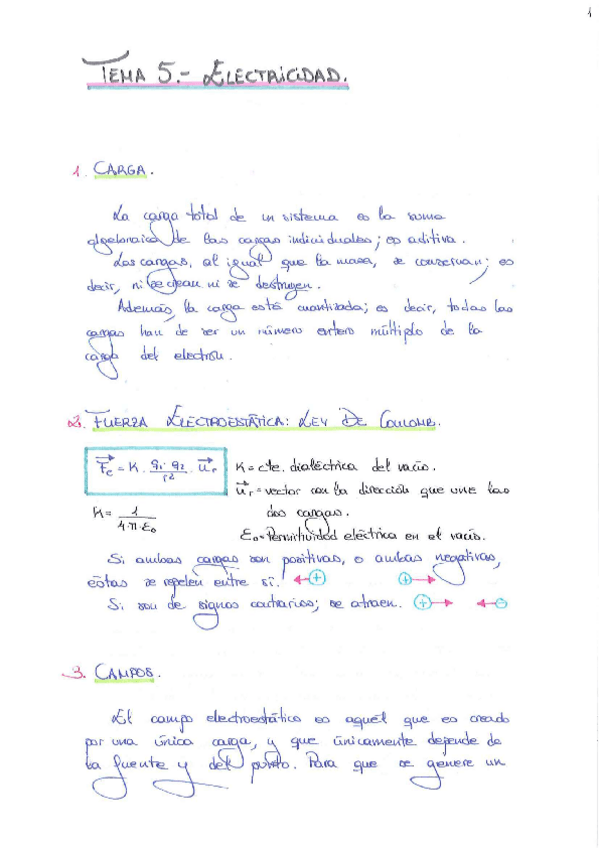 1
TEMA 5.- ELECTRICIDAD.
1. CARGA.
La carga total de un sistema es la suma
algebraica de las cargas individuales; es aditiva.
Las cargas, al igual que la masa, se conservan; es
decir, ni se crean ni se destruyen.
Además, la carga está cuantizada; es decir, todas las
cargas han de ser un número entero múltiplo de la
carga del electrón.
2. FUERZA ELECTROESTÁTICA: LEY DE COULOMB.
F⃗e = K · q1 · q2 / r² · u⃗r
K = cte. dialéctrica del vacío.
u⃗r = vector con la dirección que une las
dos cargas.
K = 1 / 4·π·ε0
ε0 = Permitividad eléctrica en el vacío.
Si ambas cargas son positivas, o ambas negativas,
éstas se repelen entre sí. ←⊕ ⊕→
Si son de signos contrarios; se atraen. ⊕→ ←⊖
3. CAMPOS.
El campo electroestático es aquél que es creado
por una única carga, y que únicamente depende de
la fuente y del punto. Para que se genere un